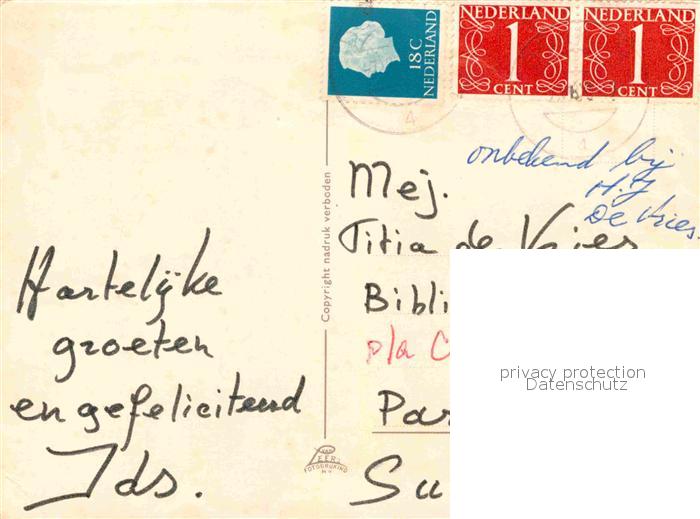 18C NEDERLAND
NEDERLAND
1
CENT
NEDERLAND
1
CENT
4
4
onbekend bij
H.J
De Vries.
Mej.
Titia de Vries
Bibli
p/a C
Par
Su
privacy protection
Datenschutz
Copyright nadruk verboden
VAN
LEER'S
FOTODRUKIND
N.V.
Hartelijke
groeten
en gefeliciteerd
Ids.